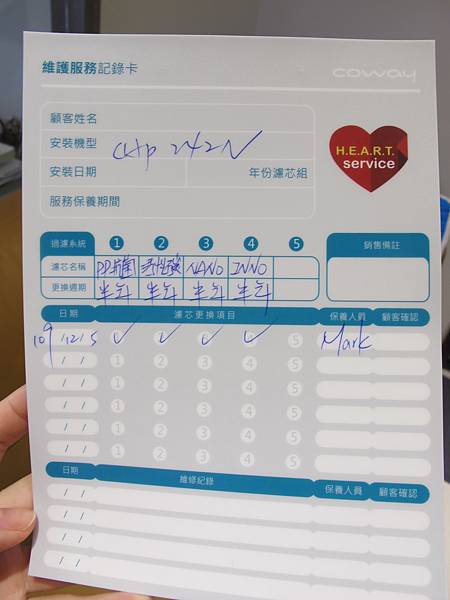 維護服務記錄卡 coway
顧客姓名
安裝機型 CHP 242N
安裝日期 年份濾芯組
服務保養期間
H.E.A.R.T.
service
過濾系統 1 2 3 4 5 銷售備註
濾芯名稱 PP抗菌 活性碳 NANO INNO
更換週期 半年 半年 半年 半年
日期 濾芯更換項目 保養人員 顧客確認
109/12/5 ✓ ✓ ✓ ✓ 5 Mark
/ / 1 2 3 4 5
/ / 1 2 3 4 5
/ / 1 2 3 4 5
/ / 1 2 3 4 5
/ / 1 2 3 4 5
日期 維修紀錄 保養人員 顧客確認
/ /
/ /
/ /
/ /